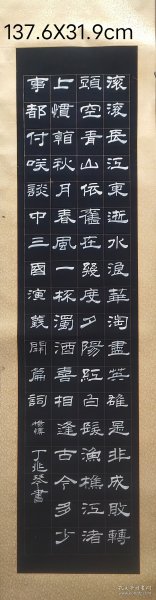 137.6X31.9cm
滾滾長江東逝水浪華淘盡英雄是非成敗轉
頭空青山依舊在幾度夕陽紅白髮漁樵江渚
上慣看秋月春風一杯濁酒喜相逢古今多少
事都付咲談中三國演義開篇詞
丁兆琴書